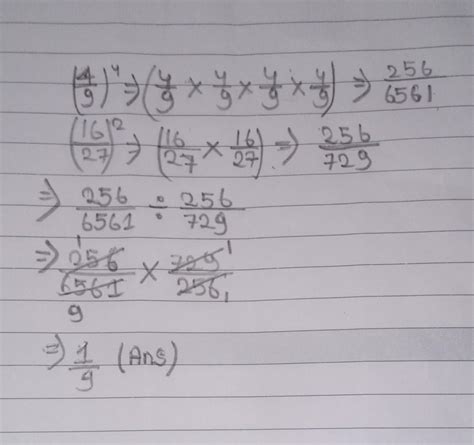 (4/9)^4 ⇒ (4/9 × 4/9 × 4/9 × 4/9) ⇒ 256/6561
(16/27)^2 ⇒ (16/27 × 16/27) ⇒ 256/729
⇒ 256/6561 ÷ 256/729
⇒ 256/6561 × 729/256
1 9 1 1
⇒ 1/9 (Ans)